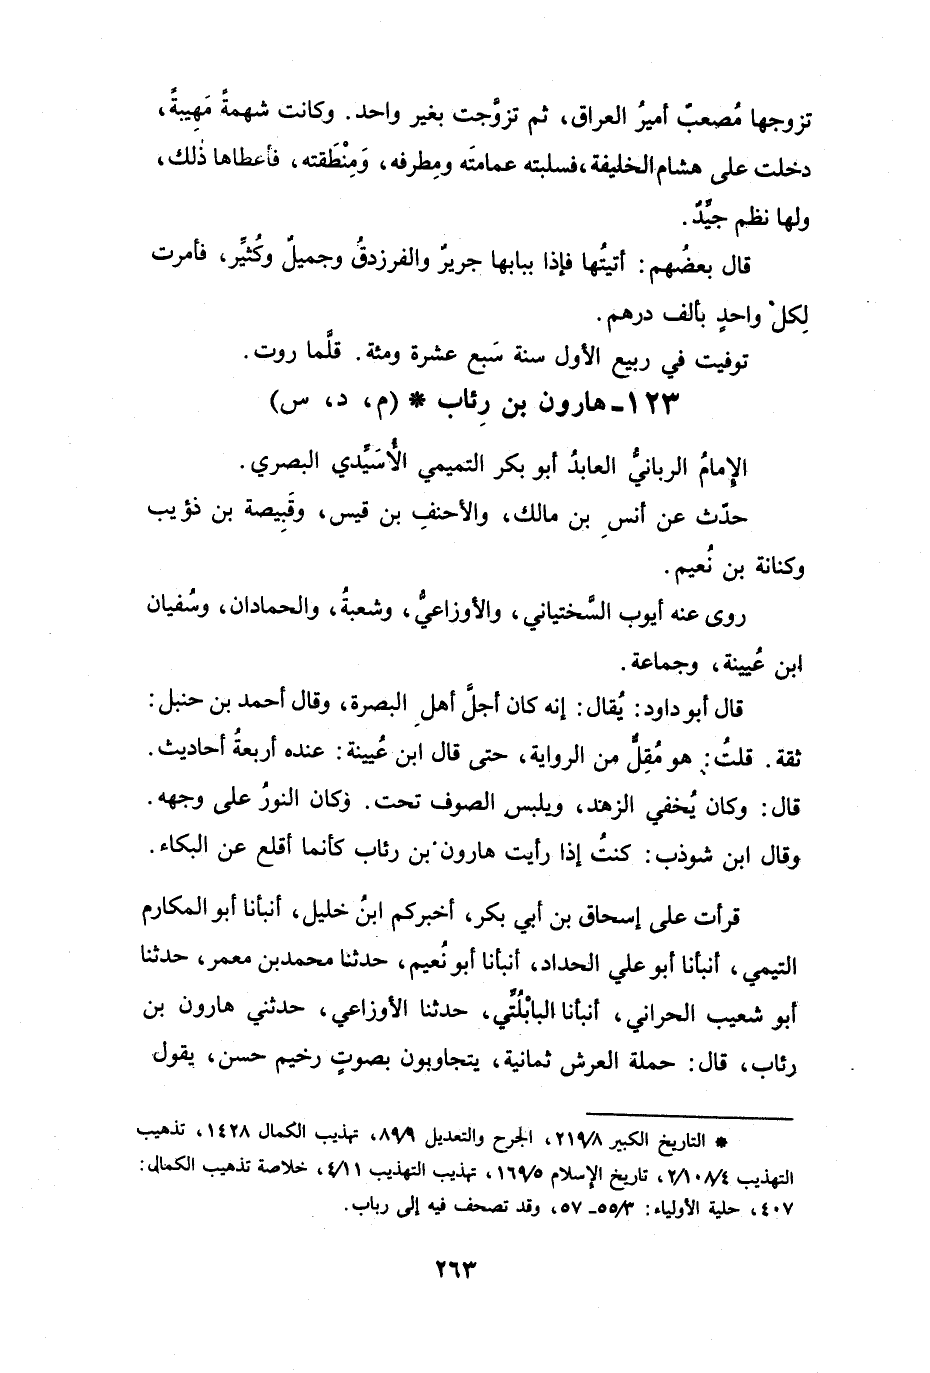 تزوجها مُصعبٌ أميرُ العراق، ثم تزوَّجت بغير واحد. وكانت شهمةً مَهِيبةً،
دخلت على هشام الخليفة، فسلبته عمامتَه ومِطرفه، وَمِنْطَقته، فأعطاها ذٰلك،
ولها نظم جيِّدٌ.
قال بعضُهم: أتيتُها فإذا ببابها جريرٌ والفرزدقُ وجميلٌ وكُثيِّر، فأمرت
لِكلْ واحدٍ بألف درهم.
توفيت في ربيع الأول سنة سَبع عشرة ومئة. قلَّما روت.
١٢٣ـ هارون بن رِئاب * (م، د، س)
الإِمامُ الربانيُّ العابدُ أبو بكر التميمي الأُسَيِّدي البصري.
حدّث عن أنسِ بن مالك، والأحنفِ بن قيس، وقَبِيصة بن ذؤيب
وكنانة بن نُعيم.
روى عنه أيوب السَّختياني، والأوزاعيُّ، وشعبةُ، والحمادان، وسُفيان
ابن عُيينة، وجماعة.
قال أبو داود: يُقال: إنه كان أجلَّ أهلِ البصرة، وقال أحمد بن حنبل:
ثقة. قلتُ: هو مُقِلٌّ من الرواية، حتى قال ابن عُيينة: عنده أربعةُ أحاديث.
قال: وكان يُخفي الزهد، ويلبس الصوف تحت. وكان النورُ على وجهه.
وقال ابن شوذب: كنتُ إذا رأيت هارون بن رئاب كأنما أقلع عن البكاء.
قرأت على إسحاق بن أبي بكر، أخبركم ابنُ خليل، أنبأنا أبو المكارم
التيمي، أنبأنا أبو علي الحداد، أنبأنا أبو نُعيم، حدثنا محمد بن معمر، حدثنا
أبو شعيب الحراني، أنبأنا البابْلُتِّي، حدثنا الأوزاعي، حدثني هارون بن
رئاب، قال: حملة العرش ثمانية، يتجاوبون بصوتٍ رخيم حسن، يقول
* التاريخ الكبير ٢١٩/٨، الجرح والتعديل ٨٩/٩، تهذيب الكمال ١٤٢٨، تذهيب
التهذيب ٢/١٠٨/٤، تاريخ الإسلام ١٦٩/٥، تهذيب التهذيب ٤/١١، خلاصة تذهيب الكمال:
٤٠٧، حلية الأولياء: ٥٥/٣ـ ٥٧، وقد تصحف فيه إلى رباب.
٢٦٣